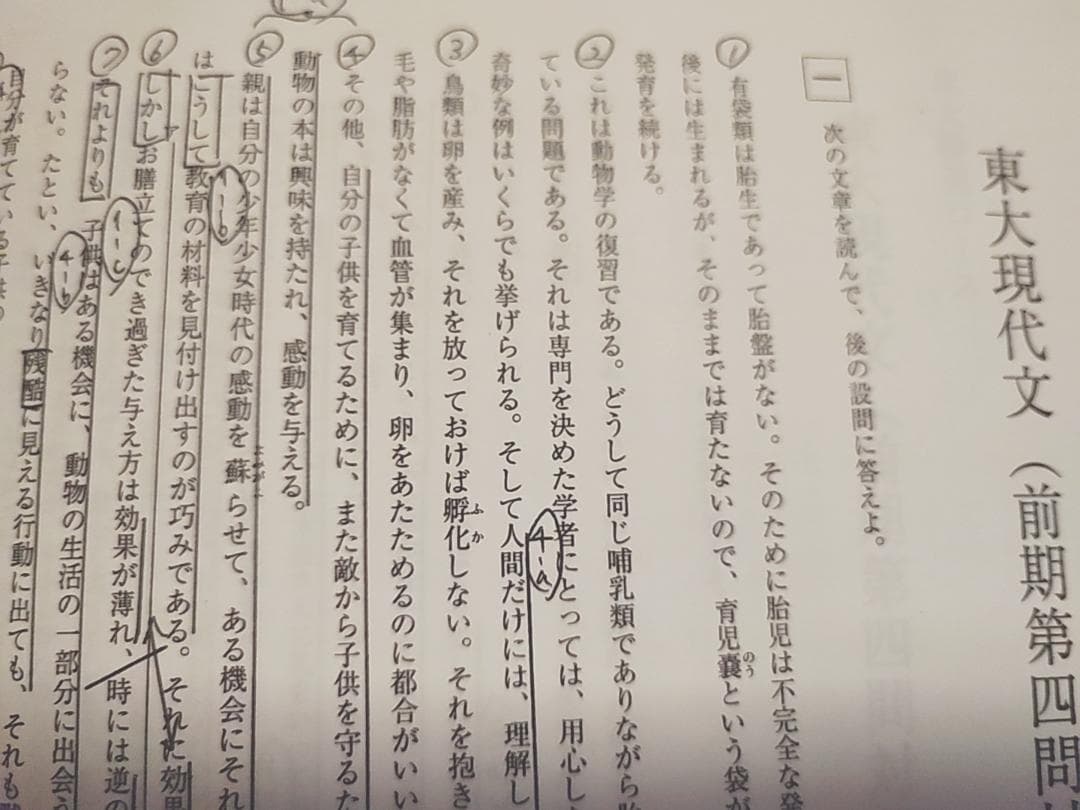 東大現代文（前期第四問
一
次の文章を読んで、後の設問に答えよ。
① 有袋類は胎生であって胎盤がない。そのために胎児は不完全な発
後には生まれるが、そのままでは育たないので、育児嚢という袋が
のう
発育を続ける。
② これは動物学の復習である。どうして同じ哺乳類でありながら
ている問題である。それは専門を決めた学者にとっては、用心し
奇妙な例はいくらでも挙げられる。そして人間だけには、理解し
4-a
③ 鳥類は卵を産み、それを放っておけば孵化しない。それを抱き
ふか
毛や脂肪がなくて血管が集まり、卵をあたためるのに都合がいい
④ その他、自分の子供を育てるために、また敵から子供を守るた
動物の本は興味を持たれ、感動を与える。
⑤ 親は自分の少年少女時代の感動を蘇らせて、ある機会にそれ
よみがえ
はこうして教育の材料を見付け出すのが巧みである。それに効果
1-b
⑥ しかしお膳立てのでき過ぎた与え方は効果が薄れ、時には逆の
ア
1-c
⑦ それよりも、子供はある機会に、動物の生活の一部分に出会う
4-b
らない。たとい、いきなり残酷に見える行動に出ても、それも
自分が育てている子供